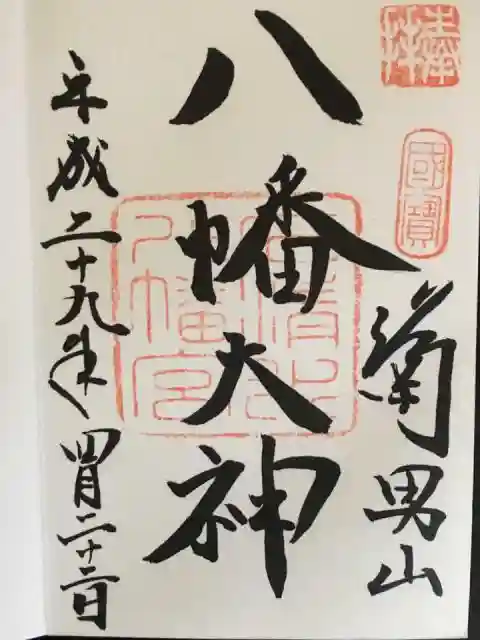 奉拝
國寶
男山
八幡大神
石清水
八幡宮
平成二十九年四月二十二日